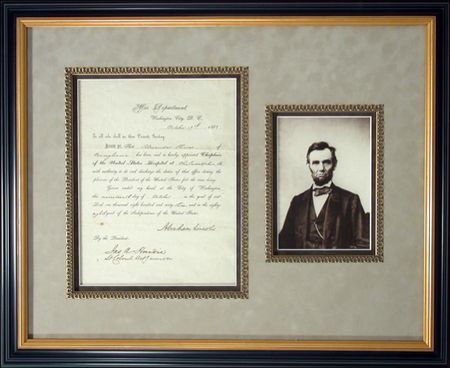 War Department,
Washington City, D. C.
October 186
To all who shall see these Presents, Greeting:
KNOW YE, That Alexander of
Pennsylvania has been, and is hereby, appointed Chaplain
of the United States Hospital at Philadelphia,
with authority to do and discharge the duties of that office during the
pleasure of the President of the United States for the time being.
Given under my hand at the City of Washington,
the day of October in the year of our
Lord one thousand eight hundred and sixty and in the eighty
of the Independence of the United States.
Abraham Lincoln
By the President:
Jas. A.